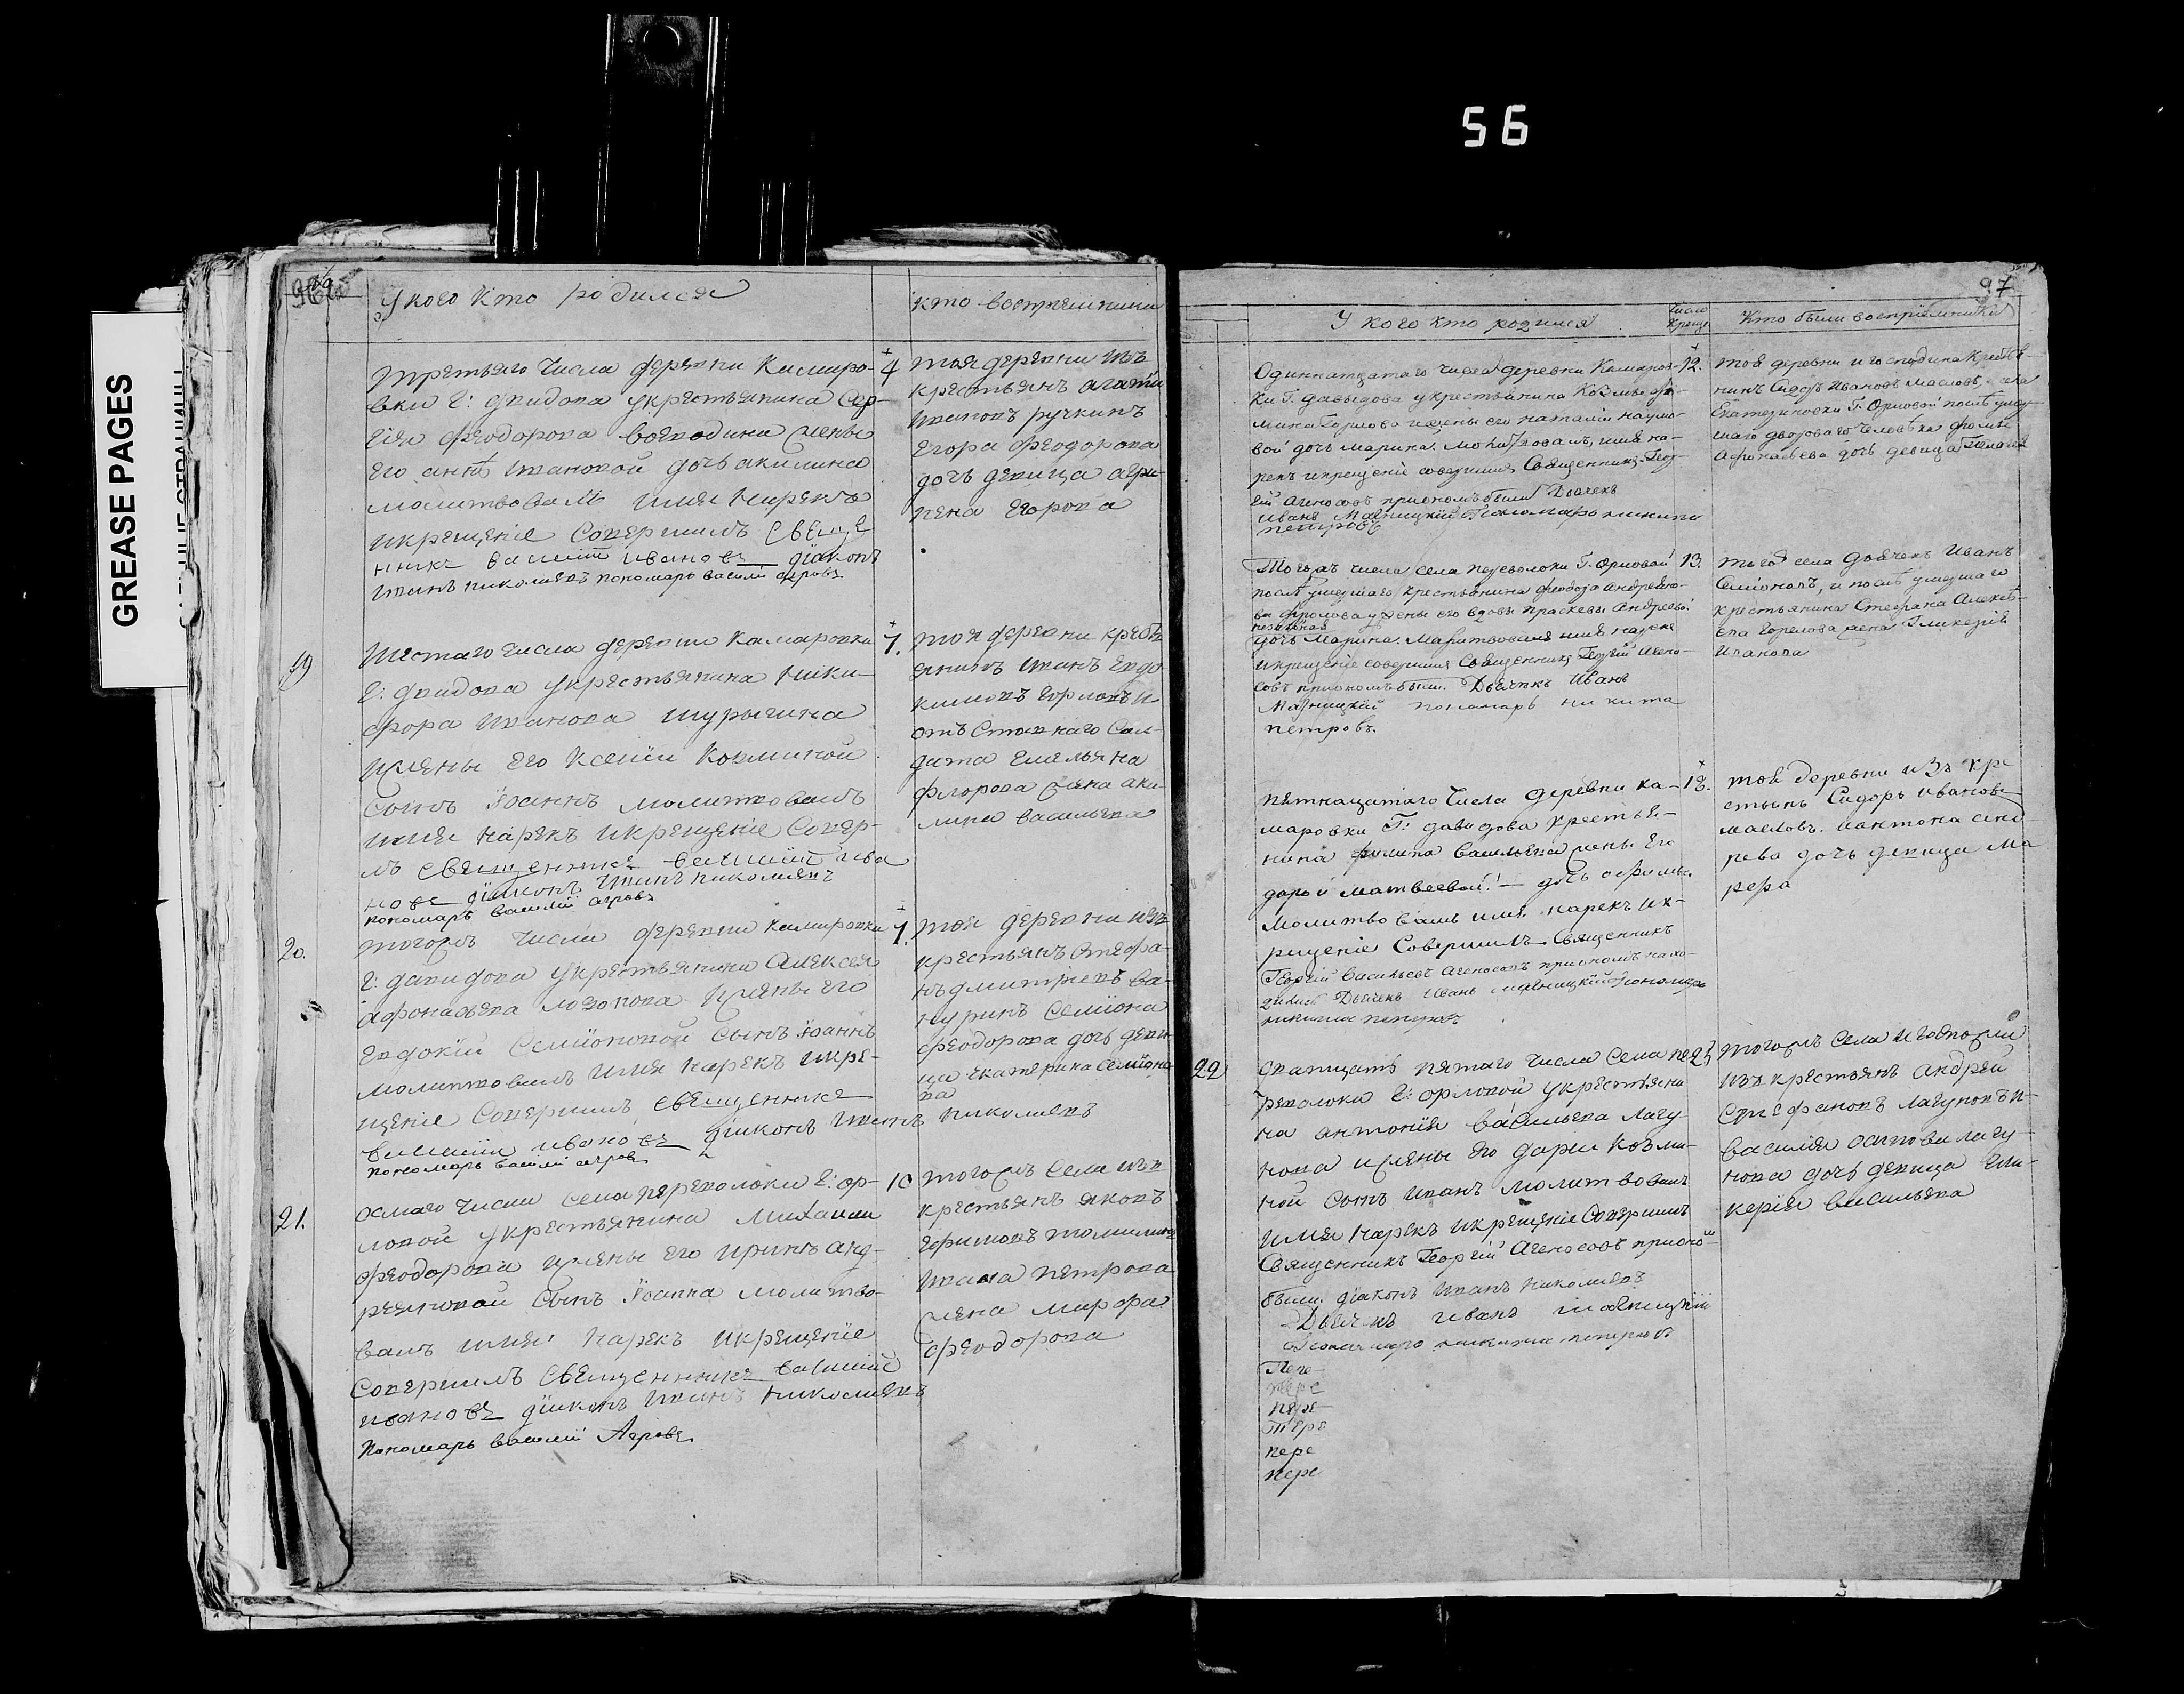 56
GREASE PAGES
96
У кого кто родился
кто восприемники
третьяго числа деревни Камаро-
4
вки Г: двидова укрестьянина Сер-
гія феодорова воеводина жены
его анны Ивановой дочь акилина
молитвовалъ имя нарекъ
икрещеніе совершилъ свеще
нникъ василій ивановъ діаконъ
иванъ николаевъ пономарь василій
тоя деревни изъ
крестьянъ
ивановъ ручкинъ
Егора феодорова
дочь девица агри-
пена Егорова
19
шестаго числа деревни Камаровки
7.
Г: двидова укрестьянина Ники-
фора Иванова шурыгина
ижены его Ксеніи Козминой
сынъ Іоаннъ молитвовалъ
имя нарекъ икрещеніе совер-
лъ свещенникъ василій ива
новъ діаконъ иванъ николаевъ
пономарь василій
тоя деревни кресть
янинъ иванъ Евдо
кимовъ Горловъ и
отъ ставнаго сол-
дата Емельяна
флорова жена аки-
лина васильева
20.
тогожъ числа деревни камаровки
7.
Г: давидова укрестьянина Алексея
афонасьева лозовова ижены его
Евдокіи Семіоновой сынъ Іоаннъ
молитвовалъ имя нарекъ икре-
щеніе совершилъ свещенникъ
василій ивановъ діаконъ иванъ николаевъ
пономарь василій
тоя деревни изъ
крестьянъ стефа-
нъ дмитріевъ ва-
нуринъ семіона
феодорова дочь деви-
ца екатерина семіоно
ва
21.
осмаго числа села переволоки Г: ор-
10
ловой укрестьянина михаила
феодорова ижены его ирины анд-
реяновой сынъ Іоанна молитво-
валъ имя нарекъ икрещеніе
совершилъ свещенникъ василій
ивановъ діаконъ иванъ николаевъ
пономарь василій
тогожъ села изъ
крестьянъ яковъ
ефимовъ томилинъ
ивана петрова
жена марфа
феодорова
97
У кого кто родился
число крещ.
Кто были воспріемники
Одиннатцатаго числа деревни Камаров-
12.
ки Г. давыдова укрестьянина Козмы фо-
мина Горлова ижены его наталіи наумо-
вой дочь марина. молитвовалъ, имя на-
рекъ икрещеніе совершилъ Священникъ Геор-
гій Агеносовъ приономъ были Дьячекъ
Иванъ Мавницкій Пономарь никита
петровъ
тоя деревни и господина крестья-
нинъ Сидоръ Ивановъ масловъ, села
Екатериновки Г. Орловой послѣ умер-
шаго двороваго человека
Афонасьева дочь девица Пелагея
Тогожъ числа села переволоки Г. Орловой
13.
послѣ умершаго крестьянина феодора андреяно-
ва фролова ужены его вдовы праскевы андреевой
дочь Марина. Молитвовалъ имя нарекъ
икрещеніе совершилъ Священникъ Георгій Агено-
совъ приономъ были. Дьячекъ Иванъ
Мавницкій пономарь никита
петровъ.
того села дьячекъ Иванъ
Семіоновъ, и послѣ умершаго
крестьянина Стефана Алексѣ-
ева Горелова жена Гликерія
Иванова
пятнацатаго числа деревни Ка-
18.
маровки Г: давидова крестья-
нина филипа васильева жены его
дарьи матвеевой: дочь
молитвовалъ имя нарекъ ик-
рищеніе Совершилъ Священникъ
Георгій Васильевъ Агеносовъ приономъ нахо-
дились Дьячекъ Иванъ мавницкій Пономарь
никита петровъ
тоя деревни изъ кре
стьянъ Сидоръ ивановъ
масловъ. иантона
рева дочь девица ма
22
дватцать пятаго числа села пе-
25
револоки Г: орловой укрестьяни
на антонія васильева лагу
нова ижены его дарьи козми-
ной сынъ иванъ молитвовалъ
имя нарекъ икрещеніе совершилъ
Священникъ Георгій Агеносовъ приономъ
были. діаконъ иванъ николаевъ
Дьячекъ иванъ мавницкій
Пономарь никита петровъ
тогожъ села игоспожи
изъ крестьянъ андрей
стефановъ лагуновъ и-
василія осипова лагу-
нова дочь девица гли-
керія васильева
Пере
пере
пере
пере
пере
пере